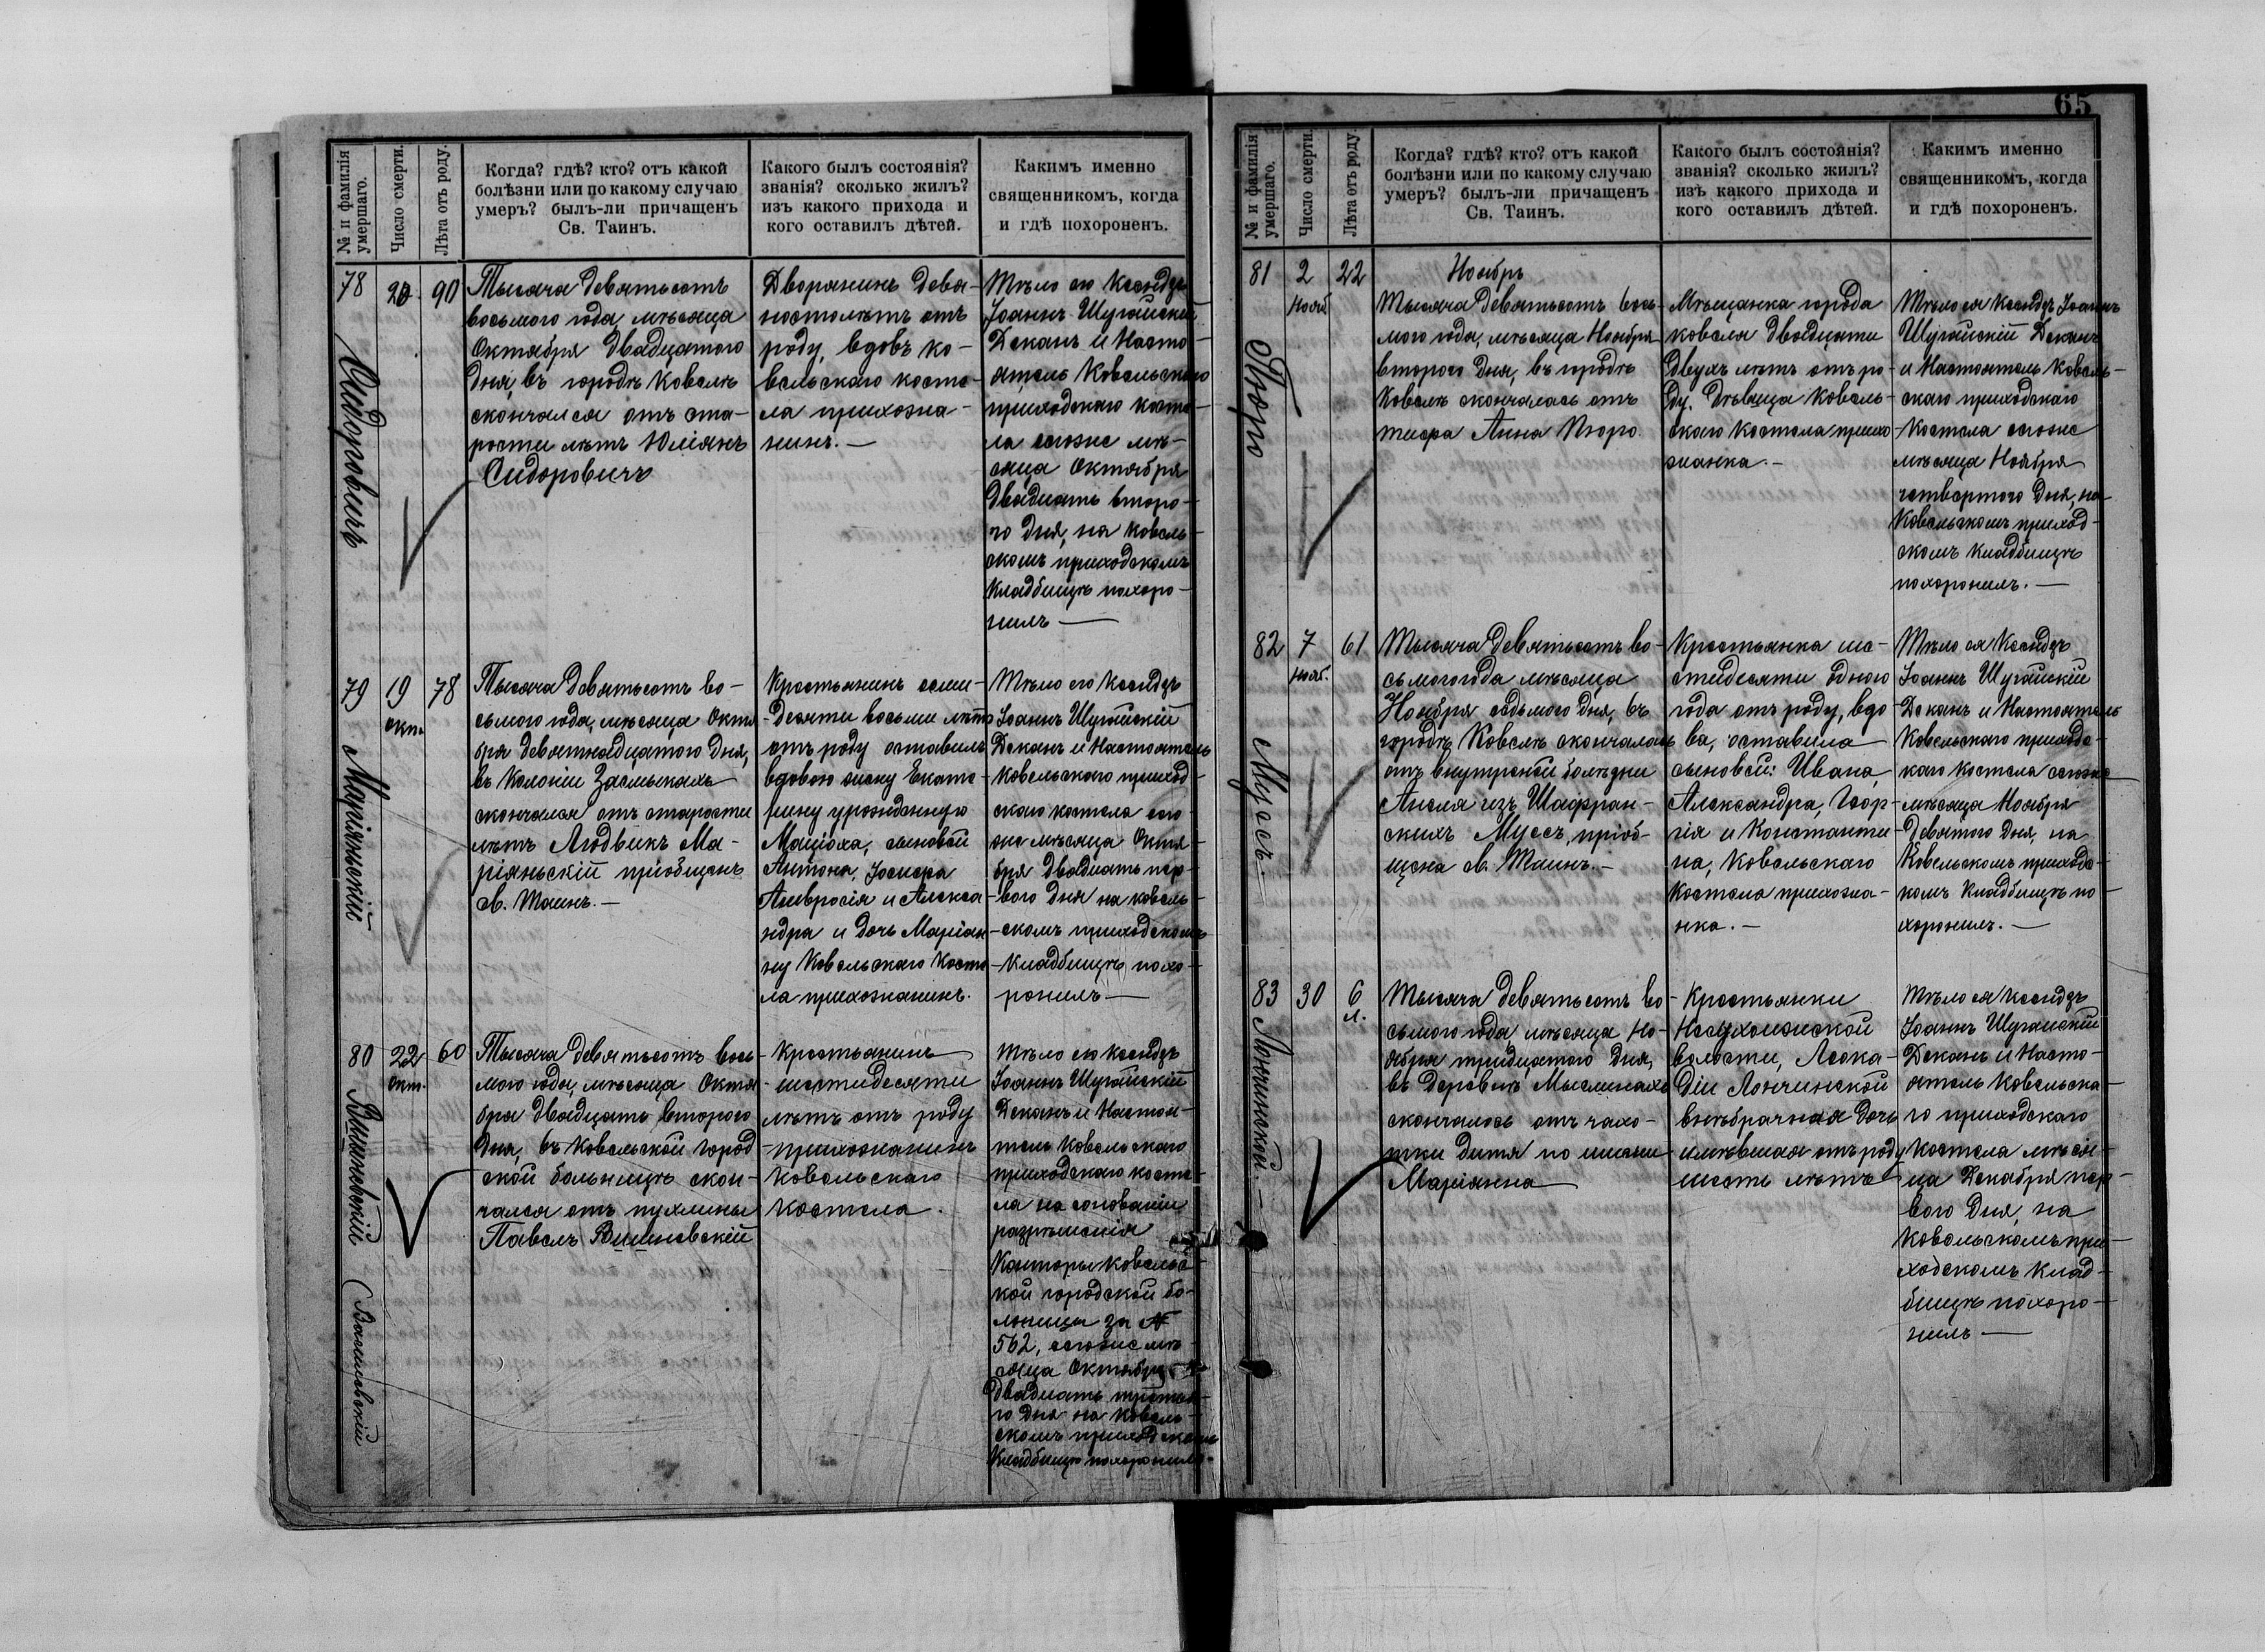 № и фамилія
умершаго.
Число смерти.
Лѣта отъ роду.
Когда? гдѣ? кто? отъ какой
болѣзни или по какому случаю
умеръ? былъ-ли причащенъ
Св. Таинъ.
Какого былъ состоянія?
званія? сколько жилъ?
изъ какого прихода и
кого оставилъ дѣтей.
Какимъ именно
священникомъ, когда
и гдѣ похороненъ.
78
Сидоровичъ
20
90
Тысяча девятьсотъ
восьмого года, мѣсяца
Октября двадцатого
дня, въ городѣ Ковелѣ
скончался отъ ста-
рости лѣтъ Юліянъ
Сидоровичъ
Дворянинъ девя-
ностолѣтъ отъ
роду, вдовъ ко-
вельскаго косте-
ла прихожа-
нинъ. —
Тѣло его Ксендзъ
Іоаннъ Шугайскій
Деканъ и Насто-
ятель Ковельскаго
приходскаго косте-
ла сегоже мѣ-
сяца Октября
двадцать второ-
го дня, на ковель-
скомъ приходскомъ
кладбищѣ похоро-
нилъ —
79
Маріянскій
19
окт.
78
Тысяча девятьсотъ во-
сьмого года, мѣсяца Октя-
бря девятнадцатого дня,
въ Колоніи Засмыкахъ
скончался отъ старости
лѣтъ Людвикъ Ма-
ріяньскій пріобщенъ
св. Таинъ. —
Крестьянинъ семи-
десяти восьми лѣтъ
отъ роду оставилъ
вдовою жену Екате-
рину урожденную
Маціоха, сыновей
Антона, Іосифа
Амвросія и Алекса-
ндра и дочь Маріан-
ну Ковельскаго косте-
ла прихожанинъ.
Тѣло его Ксендзъ
Іоаннъ Шугайскій
Деканъ и Настоятель
Ковельскаго приход-
скаго костела сего-
же мѣсяца Октя-
бря двадцать пер-
вого дня на ковель-
скомъ приходскомъ
кладбищѣ похо-
ронилъ —
80
Вишневскій (Васильевскій
22
окт.
60
Тысяча девятьсотъ вось-
мого года, мѣсяца Октя-
бря двадцать второго
дня, въ Ковельской город-
ской больницѣ скон-
чался отъ пухлины
Павелъ Вишневскій
Крестьянинъ
шестидесяти
лѣтъ отъ роду
прихожанинъ
ковельскаго
костела.
Тѣло его ксендзъ
Іоаннъ Шугайскій
Деканъ и Настоя-
тель Ковельскаго
приходскаго косте-
ла на основаніи
разрѣшенія
Конторы Ковельс-
кой городской бо-
льницы за №
562, сегоже мѣ-
сяца Октября
двадцать третья-
го дня на ковель-
скомъ приходскомъ
кладбищѣ похоронилъ.
65
№ и фамилія
умершаго.
Число смерти.
Лѣта отъ роду.
Когда? гдѣ? кто? отъ какой
болѣзни или по какому случаю
умеръ? былъ-ли причащенъ
Св. Таинъ.
Какого былъ состоянія?
званія? сколько жилъ?
изъ какого прихода и
кого оставилъ дѣтей.
Какимъ именно
священникомъ, когда
и гдѣ похороненъ.
81
Пюро
2
Нояб
22
Ноябрь
Тысяча девятьсотъ вось-
мого года, мѣсяца Ноября
второго дня, въ городѣ
Ковелѣ скончалась отъ
тифа Анна Пюро.
Мѣщанка города
ковеля двадцати
двухъ лѣтъ отъ ро-
ду. Дѣвица Ковель-
скаго костела прихо-
жанка. —
Тѣло ея Ксендзъ Іоаннъ
Шугайскій Деканъ
и Настоятель Ковель-
скаго приходскаго
костела сегоже
мѣсяца Ноября
четвертого дня, на
Ковельскомъ приход-
скомъ кладбищѣ
похоронилъ. —
82
Муссъ
7
нояб.
61
Тысяча девятьсотъ во-
сьмого года мѣсяца
Ноября седьмого дня, въ
городѣ Ковелѣ скончалась
отъ внутренней болѣзни
Анеля изъ Шафран-
скихъ Муссъ, пріоб-
щена св. Таинъ. —
Крестьянка ше-
стидесяти одного
года отъ роду, вдо
ва, оставила
сыновей: Ивана,
Александра, Геор-
гія и Константи-
на, Ковельскаго
костела прихожа-
нка. —
Тѣло ея Ксендзъ
Іоаннъ Шугайскій
Деканъ и Настоятель
Ковельскаго приходс-
каго костела сегоже
мѣсяца Ноября
девятого дня, на
Ковельскомъ приходс-
комъ кладбищѣ по-
хоронилъ. —
83
Лончинской. —
30
6
л.
Тысяча девятьсотъ во-
сьмого года, мѣсяца Но-
ября тридцатого дня,
въ деревнѣ Мыслинахъ
скончалось отъ чахо-
тки дитя по имени
Маріянна
Крестьянки
Несухоижской
волости, Леока-
діи Лончинской
внѣбрачная дочь
имѣвшая отъ роду
шесть лѣтъ
Тѣло ея Ксендзъ
Іоаннъ Шугайскій
Деканъ и Насто-
ятель Ковельска-
го приходскаго
костела мѣся-
ца Декабря пер-
вого дня, на
Ковельскомъ при-
ходскомъ клад-
бищѣ похоро-
нилъ —